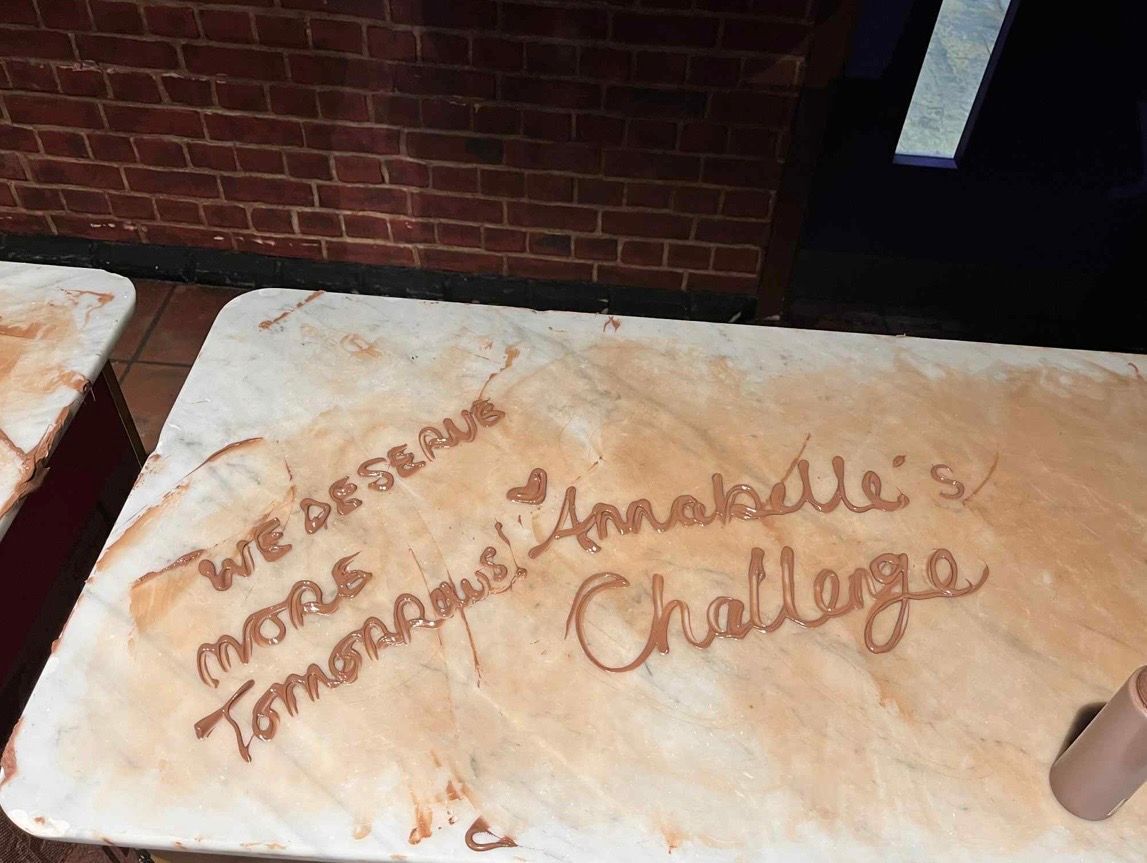 WE DESERVE
MORE
TOMORROWS!
♥ Annabelle's
Challenge